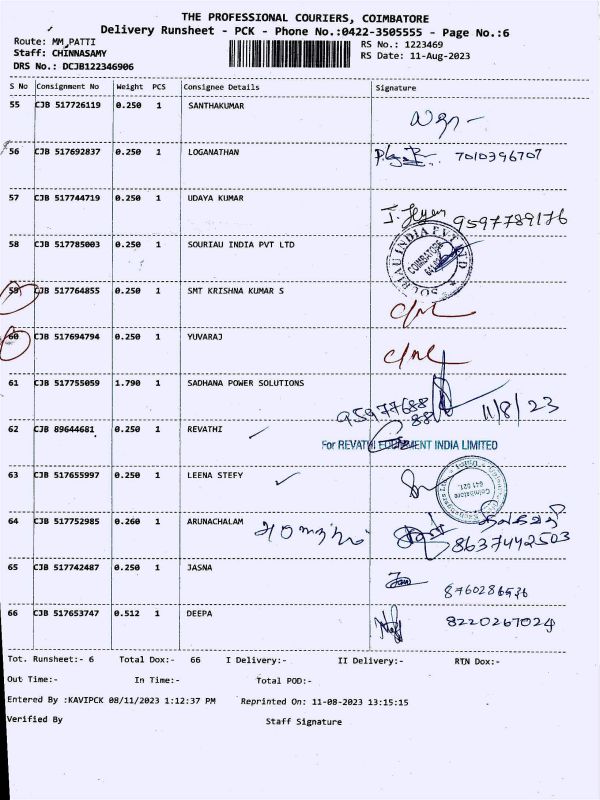 THE PROFESSIONAL COURIERS, COIMBATORE
Delivery Runsheet - PCK - Phone No.:0422-3505555 - Page No.:6
Route: MM_PATTI RS No.: 1223469
Staff: CHINNASAMY RS Date: 11-Aug-2023
DRS No.: DCJB122346906
S No Consignment No Weight PCS Consignee Details Signature
55 CJB 517726119 0.250 1 SANTHAKUMAR
56 CJB 517692837 0.250 1 LOGANATHAN 7010396707
57 CJB 517744719 0.250 1 UDAYA KUMAR 9597789176
58 CJB 517785003 0.250 1 SOURIAU INDIA PVT LTD
SOURIAU INDIA PVT LTD
COIMBATORE
59 CJB 517764855 0.250 1 SMT KRISHNA KUMAR S
60 CJB 517694794 0.250 1 YUVARAJ
61 CJB 517755059 1.790 1 SADHANA POWER SOLUTIONS 95977688
88 11/8/23
62 CJB 89644681 0.250 1 REVATHI
For REVATHI EQUIPMENT INDIA LIMITED
63 CJB 517655997 0.250 1 LEENA STEFY
Coimbatore
641 021
64 CJB 517752985 0.260 1 ARUNACHALAM
8637442503
65 CJB 517742487 0.250 1 JASNA
8760286536
66 CJB 517653747 0.512 1 DEEPA 8220267024
Tot. Runsheet:- 6 Total Dox:- 66 I Delivery:- II Delivery:- RTN Dox:-
Out Time:- In Time:- Total POD:-
Entered By :KAVIPCK 08/11/2023 1:12:37 PM Reprinted On: 11-08-2023 13:15:15
Verified By Staff Signature